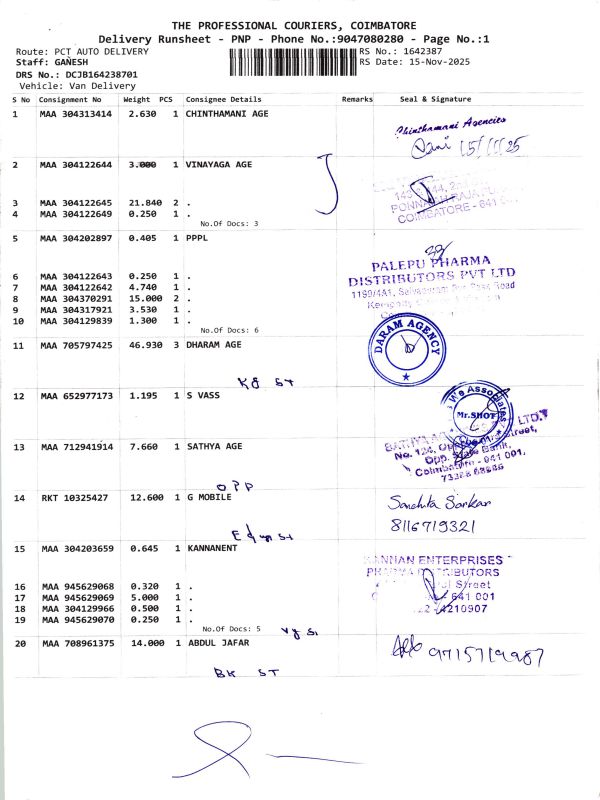 THE PROFESSIONAL COURIERS, COIMBATORE
Delivery Runsheet - PNP - Phone No.:9047080280 - Page No.:1
Route: PCT AUTO DELIVERY
RS No.: 1642387
Staff: GANESH
RS Date: 15-Nov-2025
DRS No.: DCJB164238701
Vehicle: Van Delivery
S No Consignment No Weight PCS Consignee Details Remarks Seal & Signature
1 MAA 304313414 2.630 1 CHINTHAMANI AGE
Chinthamani Agencies
15/11/25
2 MAA 304122644 3.000 1 VINAYAGA AGE
3 MAA 304122645 21.840 2 .
4 MAA 304122649 0.250 1 .
COIMBATORE - 641
No.Of Docs: 3
5 MAA 304202897 0.405 1 PPPL
PALEPU PHARMA
DISTRIBUTORS PVT LTD
1199/4A1, Road
6 MAA 304122643 0.250 1 .
7 MAA 304122642 4.740 1 .
8 MAA 304370291 15.000 2 .
9 MAA 304317921 3.530 1 .
10 MAA 304129839 1.300 1 .
No.Of Docs: 6
11 MAA 705797425 46.930 3 DHARAM AGE
DARAM AGENCY
KG ST
12 MAA 652977173 1.195 1 S VASS
We Associates
Mr.SHOT
13 MAA 712941914 7.660 1 SATHYA AGE
LTD.
No. 124, Street,
Opp. State Bank,
Coimbatore - 641 001.
OPP
14 RKT 10325427 12.600 1 G MOBILE
Sanchita Sarkar
8116719321
15 MAA 304203659 0.645 1 KANNANENT
KANNAN ENTERPRISES
Street
641 001
4210907
16 MAA 945629068 0.320 1 .
17 MAA 945629069 5.000 1 .
18 MAA 304129966 0.500 1 .
19 MAA 945629070 0.250 1 .
No.Of Docs: 5
20 MAA 708961375 14.000 1 ABDUL JAFAR
9715719987
BK ST